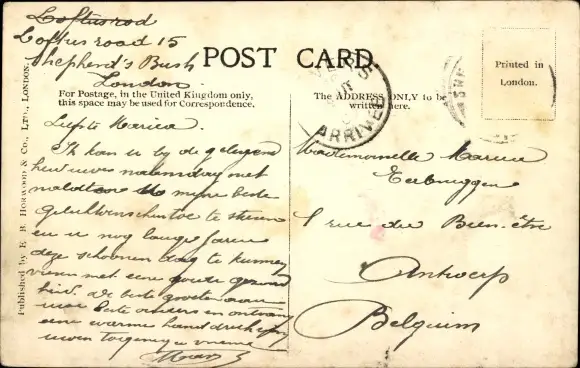 Loftusrod
Loftus road 15
Shepherd's Bush
London
POST CARD
For Postage, in the United Kingdom only,
this space may be used for Correspondence.
The ADDRESS ONLY to be
written here.
Printed in
London.
ARRIVED
Published by E. B. Horwood & Co., Ltd., London.
Liefste Maria.
Ik kan u by de gelegend
heid uwes naamsdag niet
myne beste
gelukwenschen toe te stieren
en u nog lange Jaren
deze schoonen dag te kunnen
vieren met eene goede gezond
heid. De beste groeten aan
uwe beste ouders en ontvang
eene warme hand
uwen toegenegen vriend
Mademoiselle Maria
1 rue du Bien-être
Antwerp
Belguim